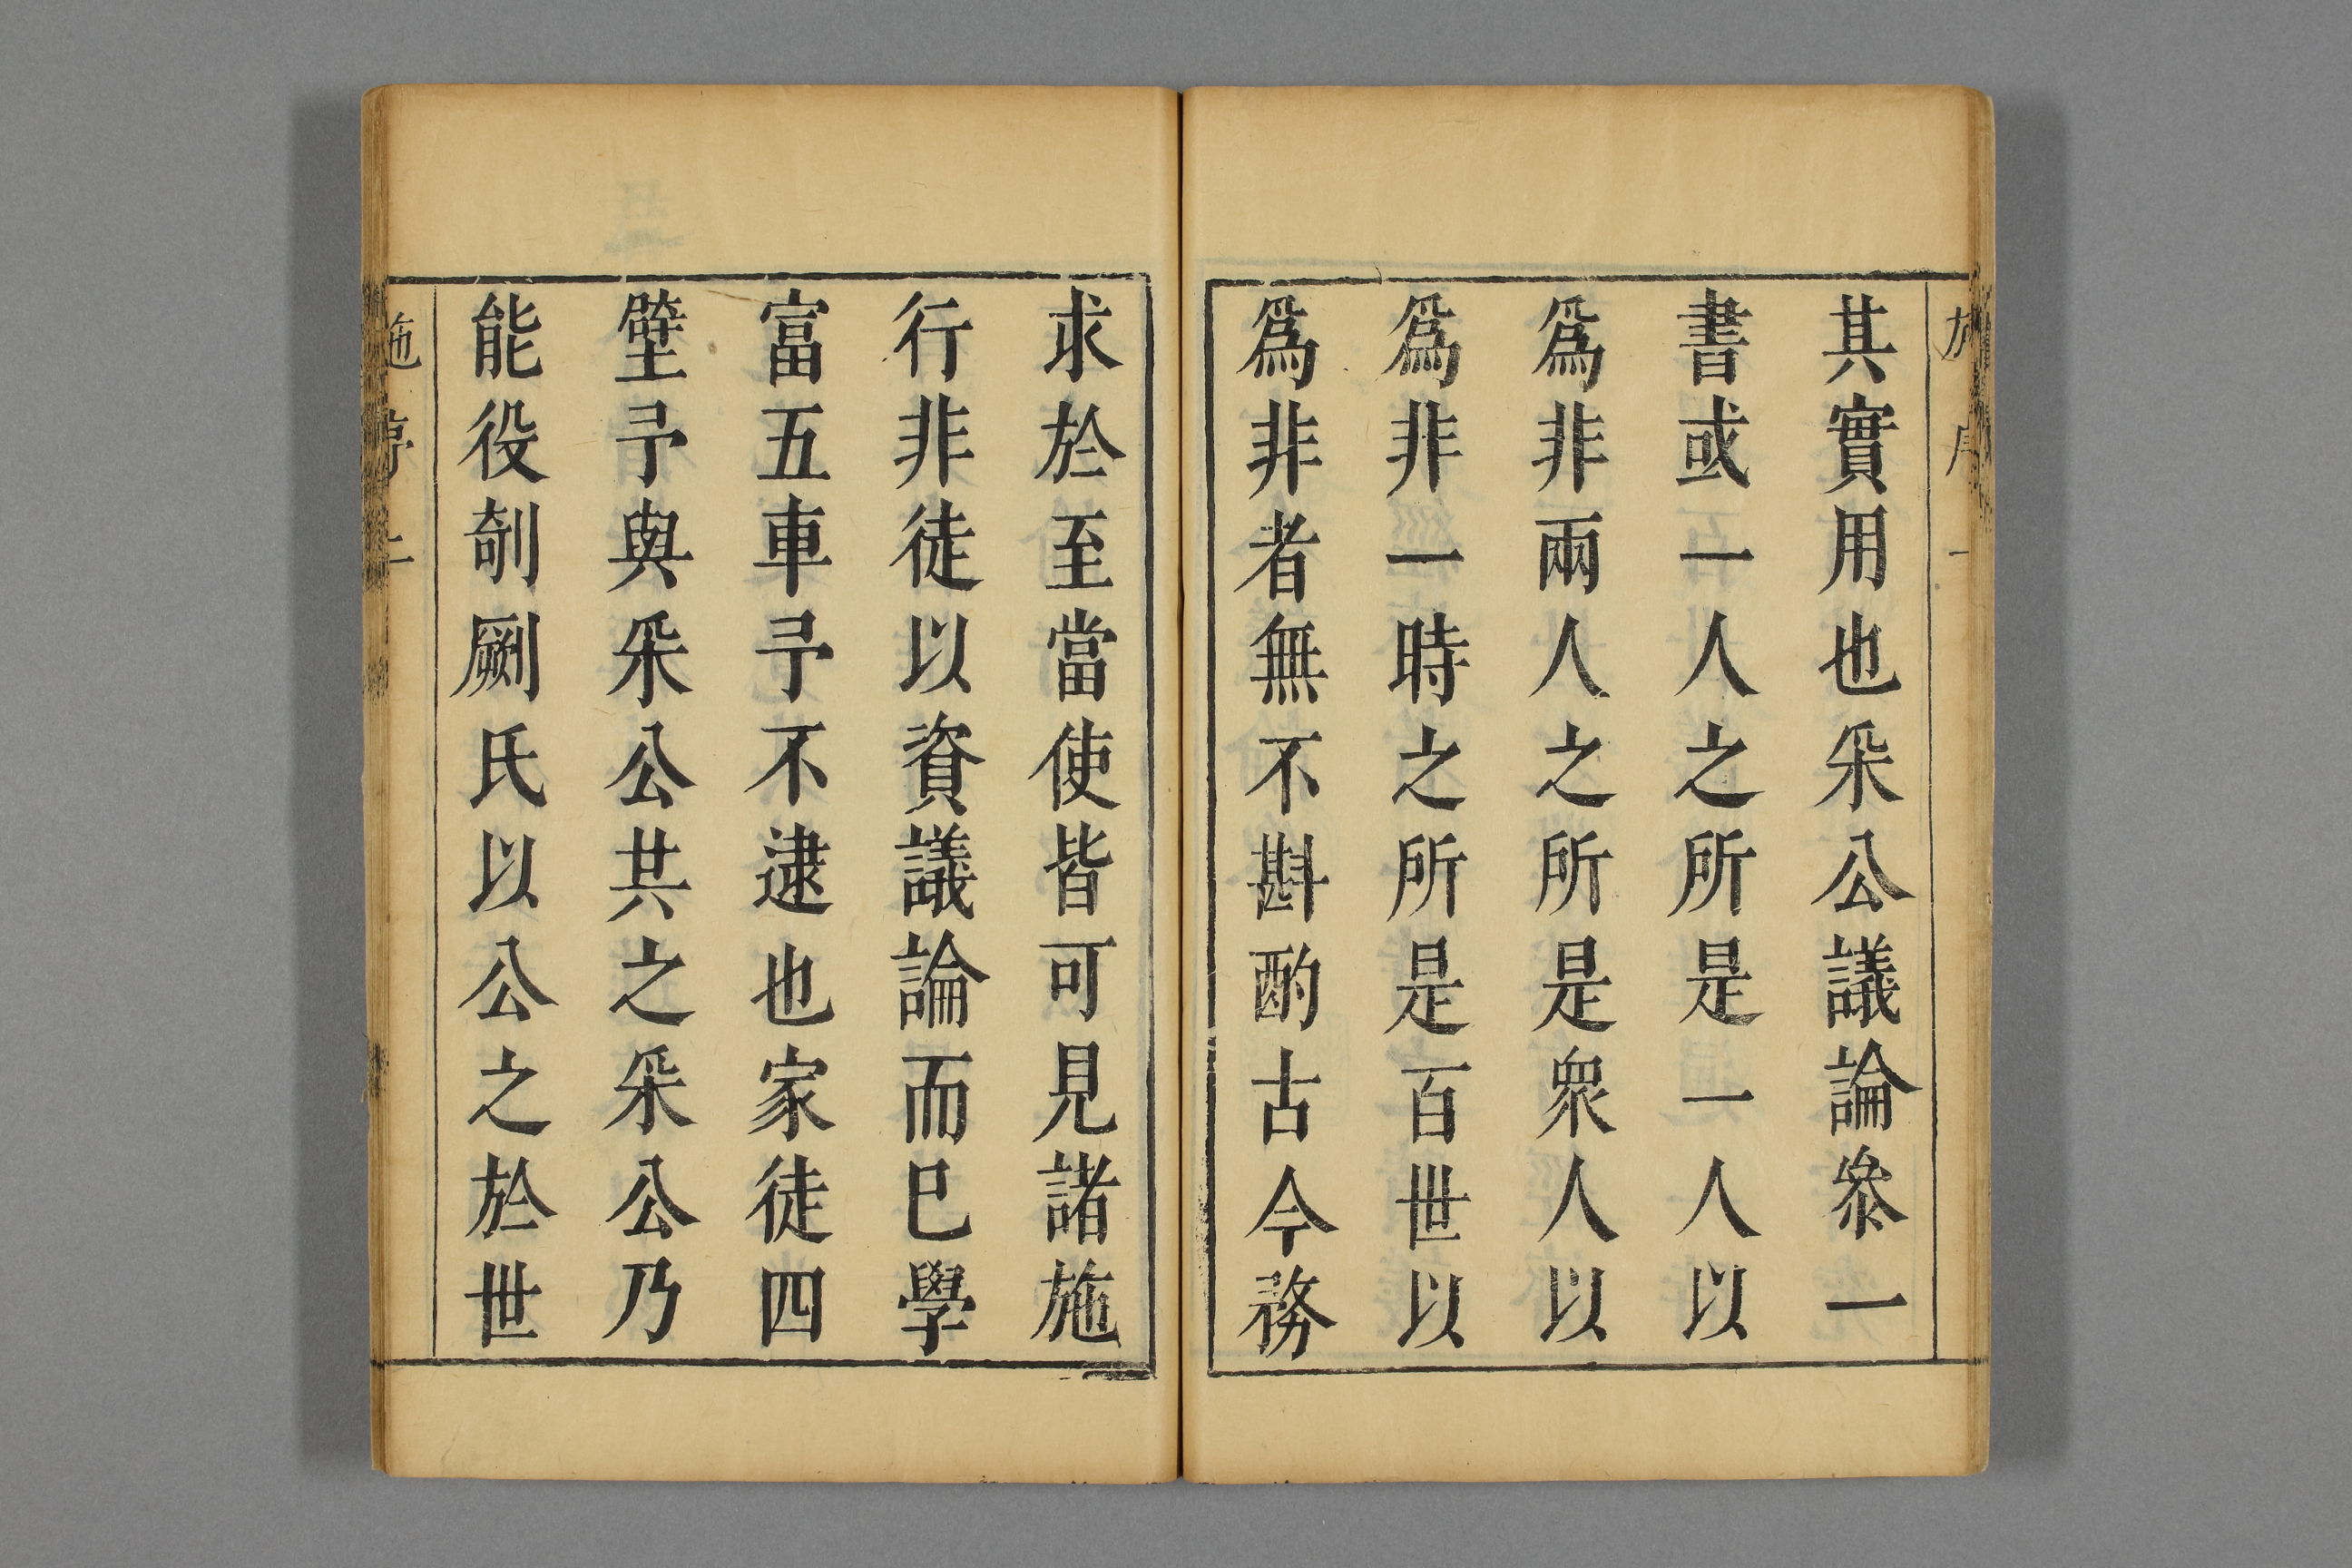 其實用也釆公議論叅一
書或一人之所是一人以
爲非兩人之所是衆人以
爲非一時之所是百世以
爲非者無不斟酌古今務
求於至當使皆可見諸施
行非徒以資議論而巳學
富五車予不逮也家徒四
壁予與釆公共之釆公乃
能役剞劂氏以公之於世